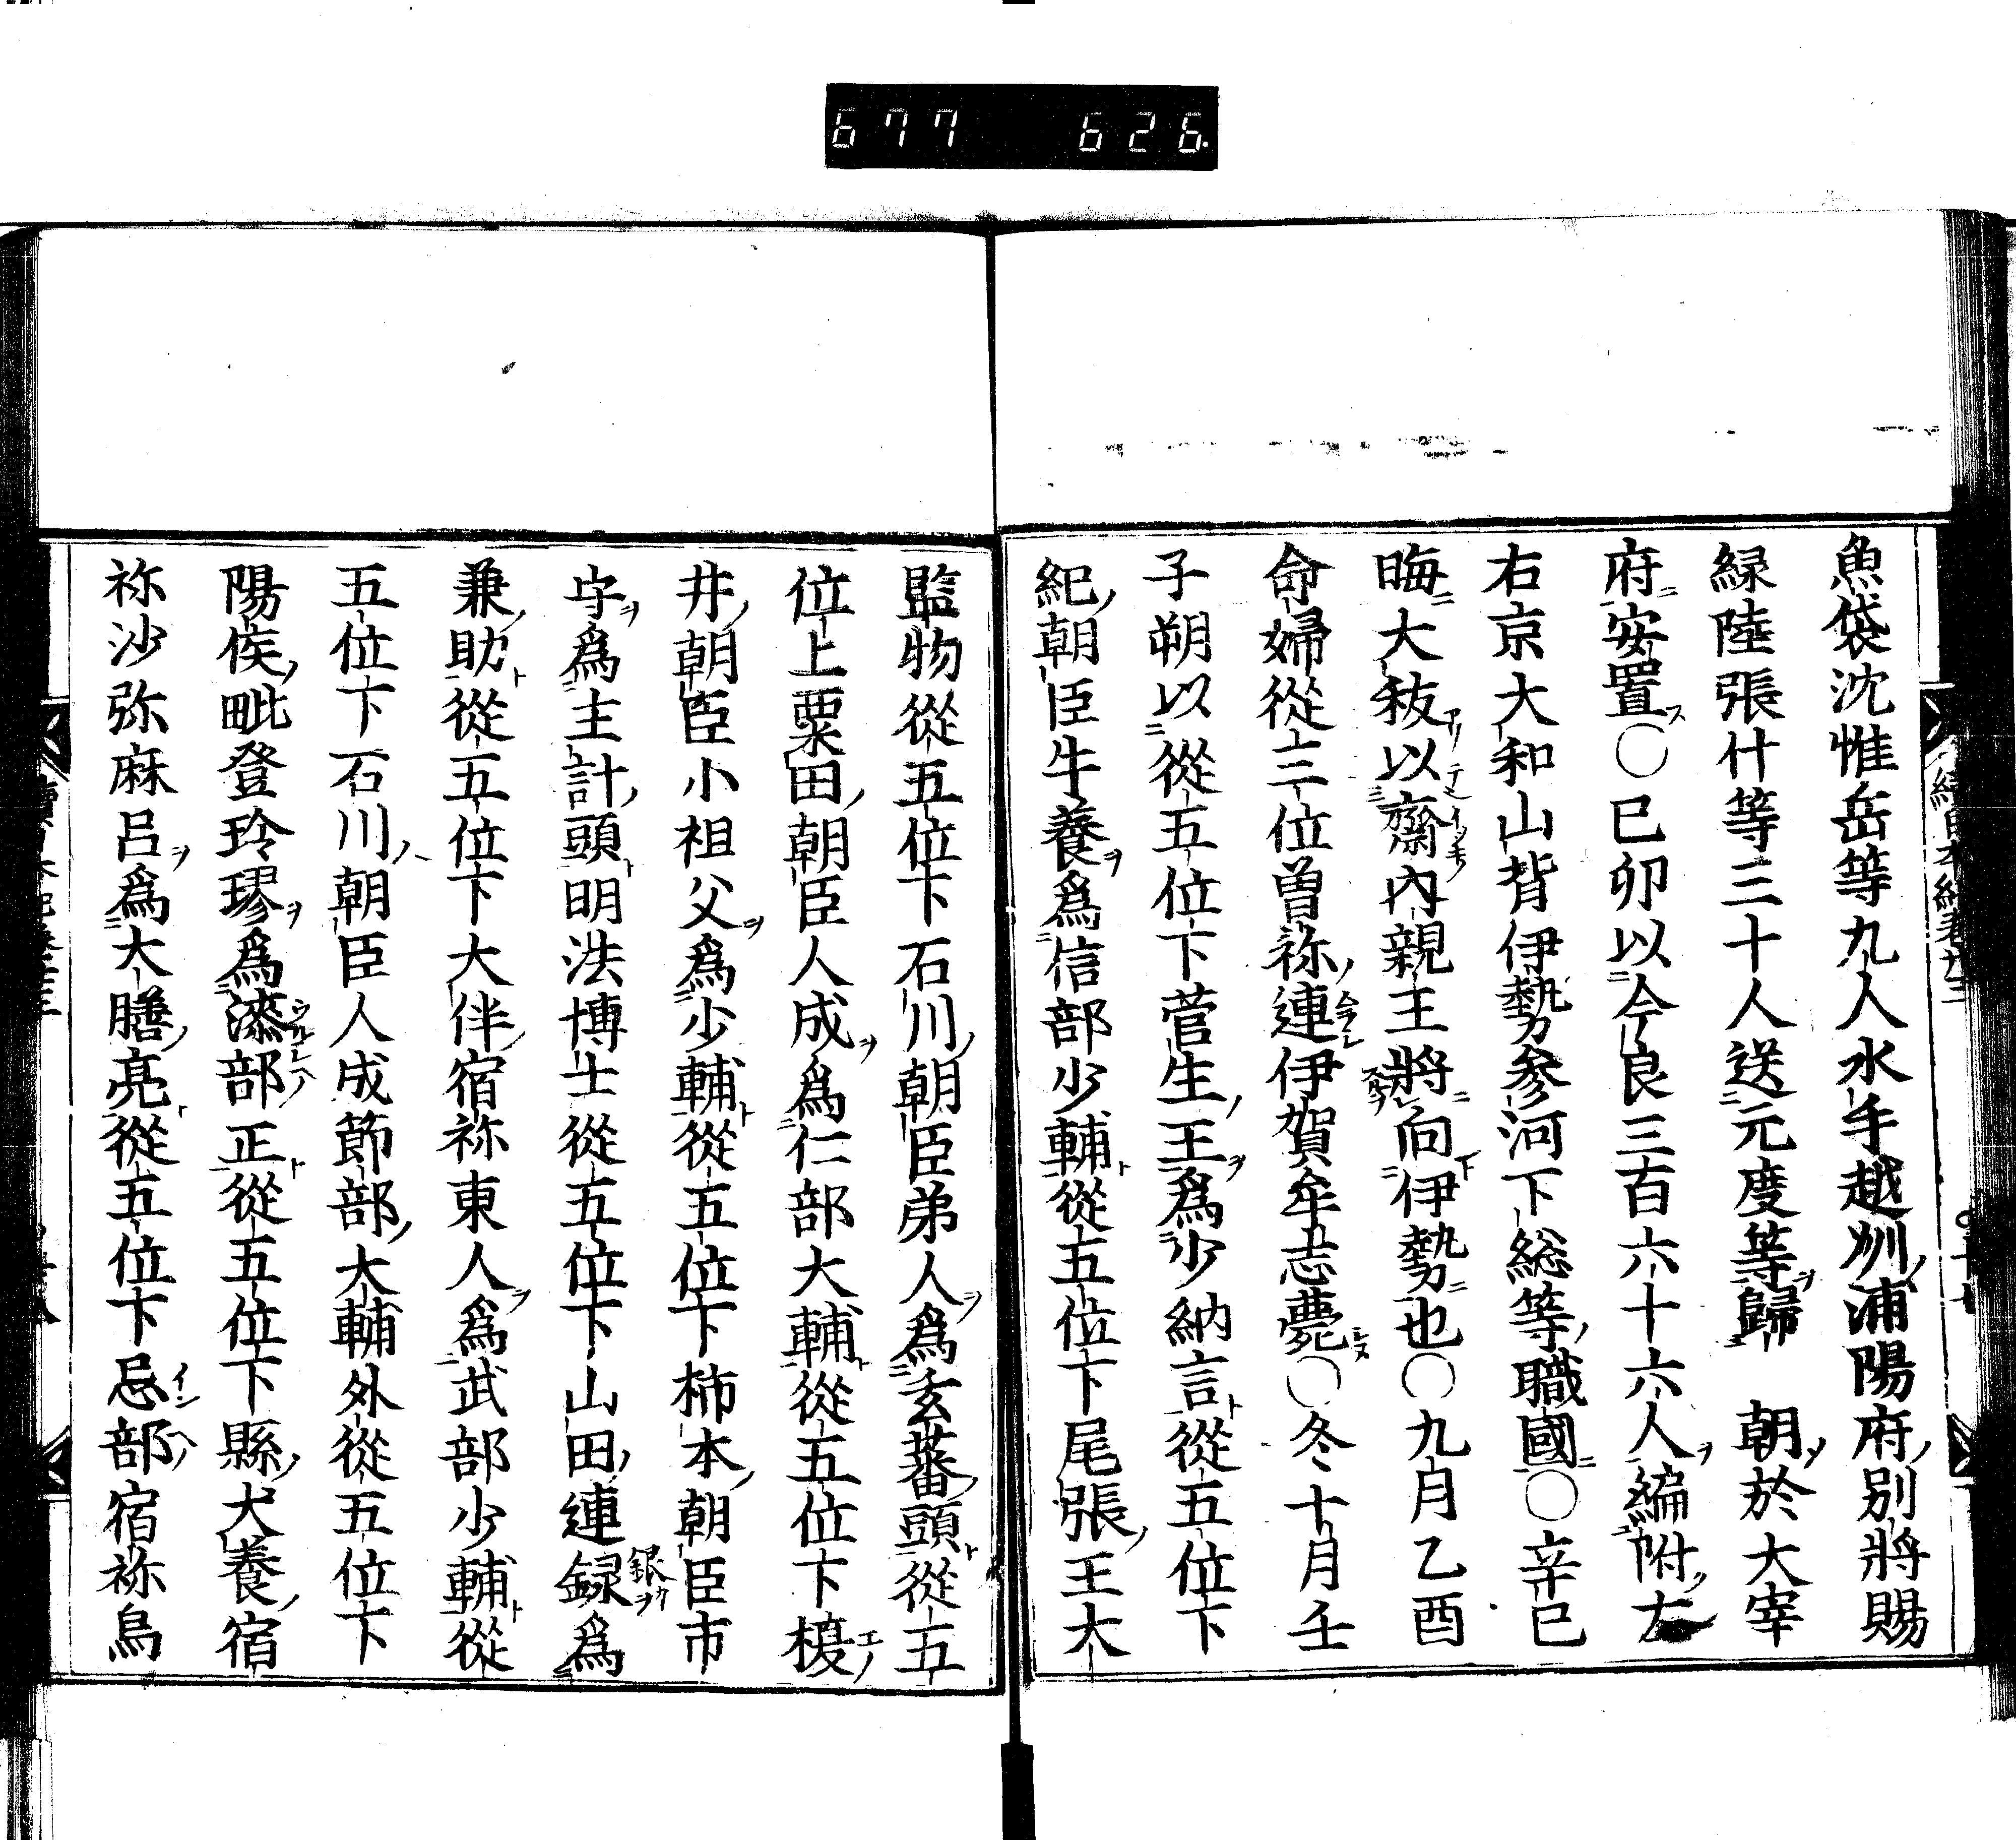 677 626
魚袋沈惟岳等九人水手越州浦陽府別將賜
緑陸張什等三十人送元度等歸 朝於大宰
府安置〇已卯以今良三百六十六人編附左
右京大和山背伊勢参河下総等職國〇辛巳
晦大秡以齋内親王將向伊勢也〇九月乙酉
命婦從三位曽祢連伊賀牟志薨〇冬十月壬
子朔以從五位下菅生王爲少納言從五位下
紀朝臣牛養爲信部少輔從五位下尾張王大
監物從五位下石川朝臣弟人爲玄蕃頭從五
位上粟田朝臣人成爲仁部大輔從五位下榎
井朝臣小祖父爲少輔從五位下柿本朝臣市
守爲主計頭明法博士從五位下山田連録爲
銀
兼助從五位下大伴宿祢東人爲武部少輔從
五位下石川朝臣人成節部大輔外從五位下
陽侯毗登玲璆爲漆部正從五位下縣犬養宿
祢沙弥麻呂爲大膳亮從五位下忌部宿祢鳥